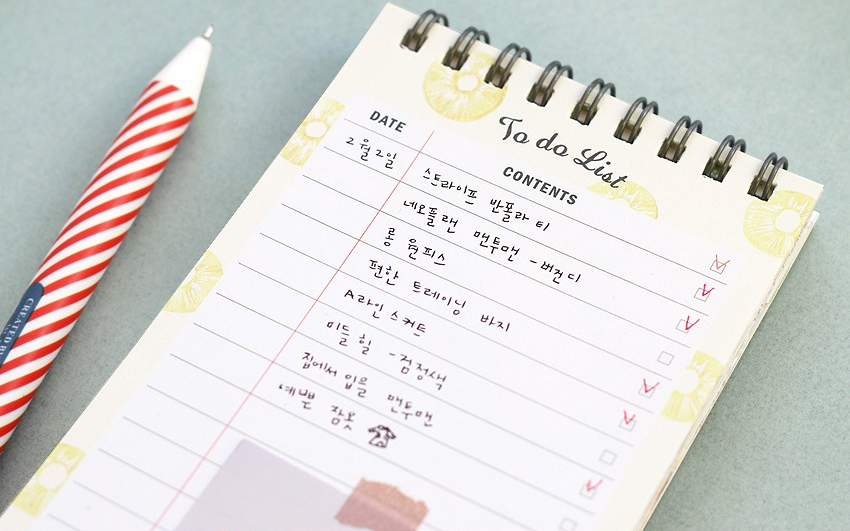 To do List
DATE CONTENTS
2월 2일 스트라이프 반폴라 티
네오플랜 맨투맨 - 버건디
롱 원피스
편한 트레이닝 바지
A라인 스커트
미들 힐 - 검정색
집에서 입을 맨투맨
예쁜 잠옷
CREATED BY